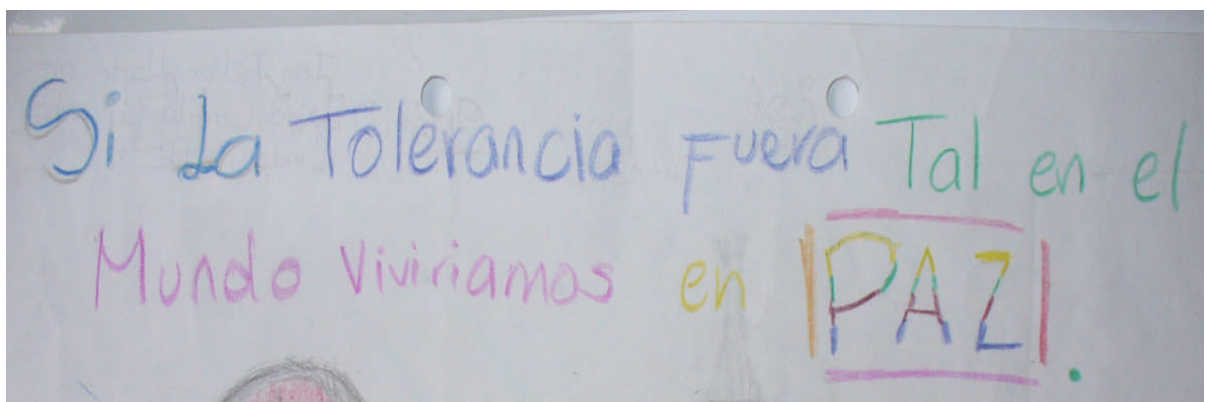 Si La Tolerancia Fuera Tal en el
Mundo Viviriamos en PAZ.